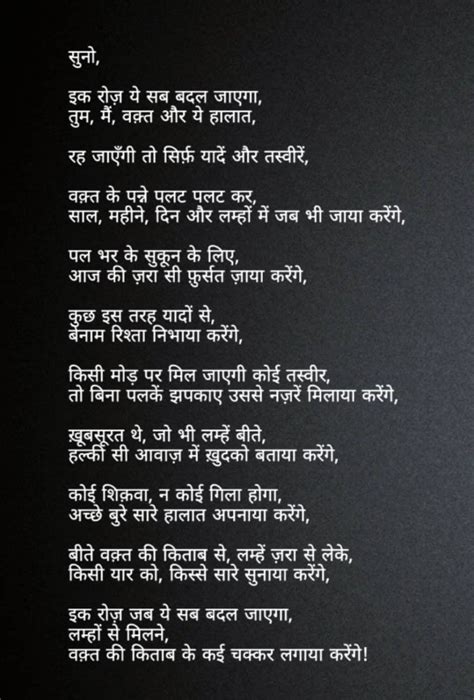 सुनो,
इक रोज़ ये सब बदल जाएगा,
तुम, मैं, वक़्त और ये हालात,
रह जाएँगी तो सिर्फ़ यादें और तस्वीरें,
वक़्त के पन्ने पलट पलट कर,
साल, महीने, दिन और लम्हों में जब भी जाया करेंगे,
पल भर के सुकून के लिए,
आज की ज़रा सी फ़ुर्सत ज़ाया करेंगे,
कुछ इस तरह यादों से,
बेनाम रिश्ता निभाया करेंगे,
किसी मोड़ पर मिल जाएगी कोई तस्वीर,
तो बिना पलकें झपकाए उससे नज़रें मिलाया करेंगे,
ख़ूबसूरत थे, जो भी लम्हें बीते,
हल्की सी आवाज़ में ख़ुदको बताया करेंगे,
कोई शिक़वा, न कोई गिला होगा,
अच्छे बुरे सारे हालात अपनाया करेंगे,
बीते वक़्त की किताब से, लम्हें ज़रा से लेके,
किसी यार को, किस्से सारे सुनाया करेंगे,
इक रोज़ जब ये सब बदल जाएगा,
लम्हों से मिलने,
वक़्त की किताब के कई चक्कर लगाया करेंगे!